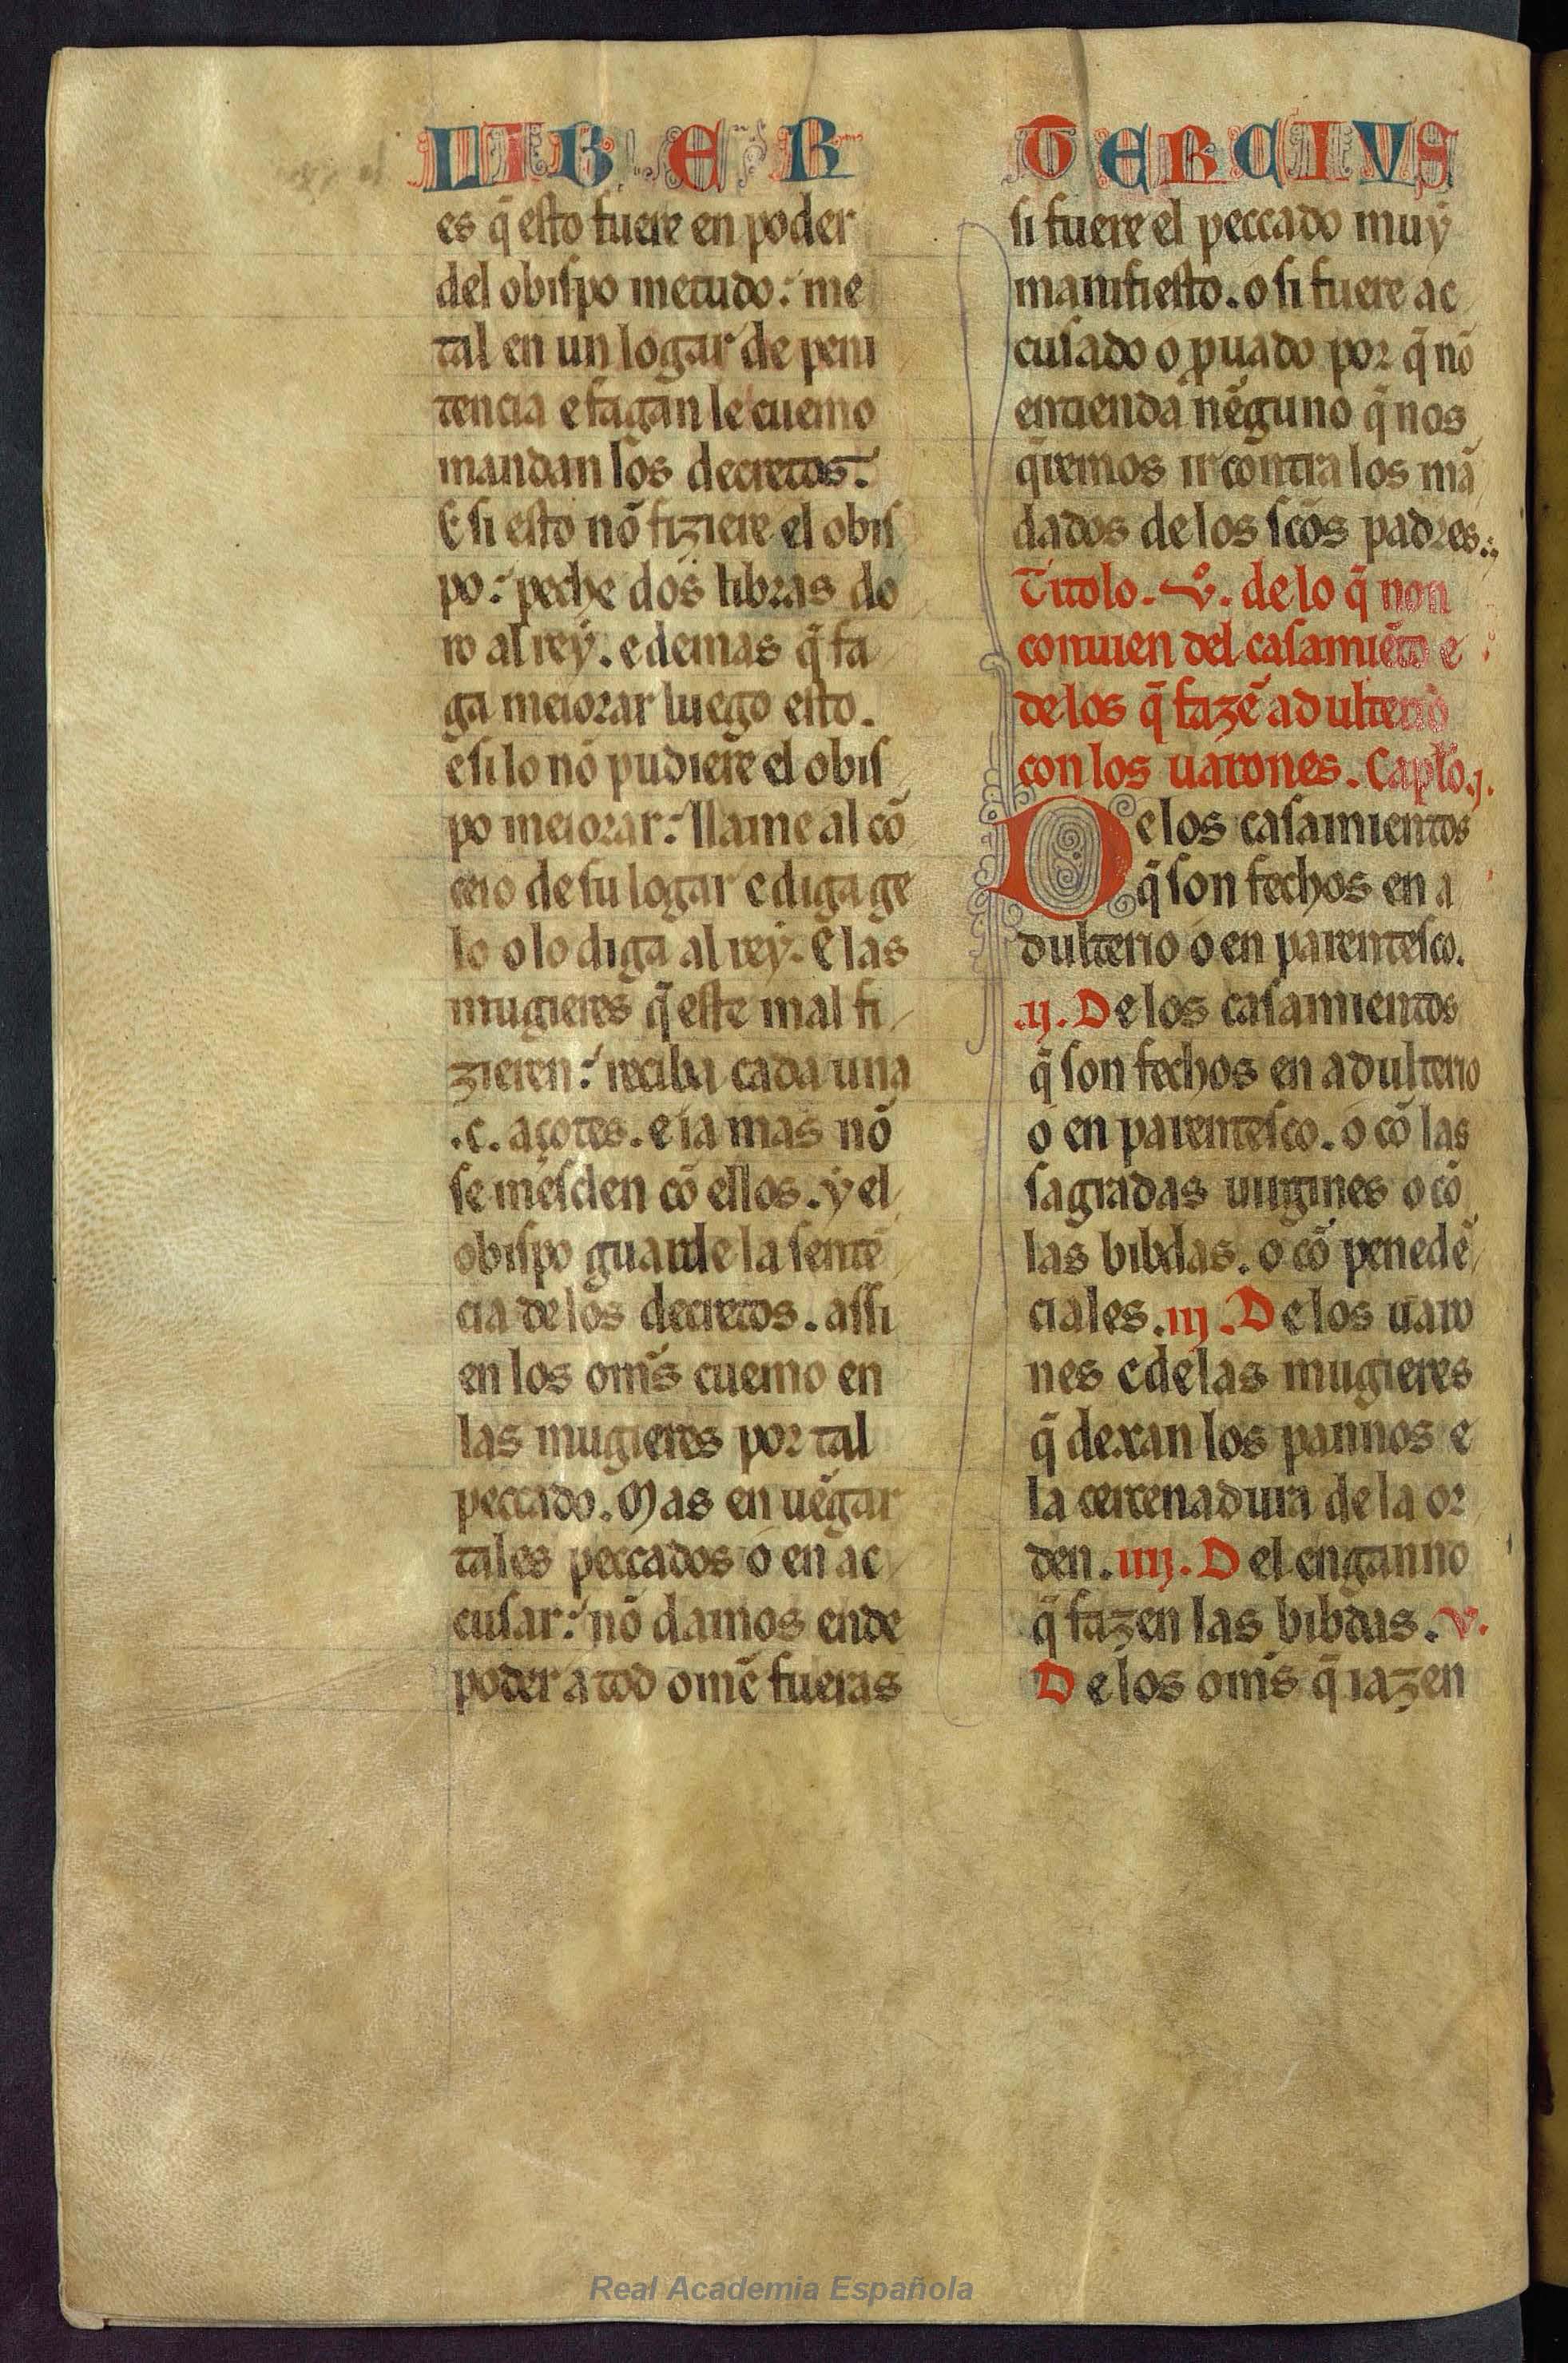 LIBER TERCIUS
es q̃ esto fuere en poder
del obispo metudo: me
tal en un logar de peni
tencia e fagan le cuemo
mandan los decretos.
E si esto nõ fiziere el obis
po: peche dos libras do
ro al rey. e demas q̃ fa
ga meiorar luego esto.
e si lo nõ pudiere el obis
po meiorar: llame al cõ
ceio de su logar e diga ge
lo o lo diga al rey. E las
mugieres q̃ este mal fi
zieren: reciba cada una
.c. açotes. e ia mas nõ
se mesclen cõ ellos. y el
obispo guarde la sentẽ
cia de los decretos. assi
en los om̃s cuemo en
las mugieres por tal
peccado. Mas en uẽgar
tales peccados o en ac
cusar: nõ damos ende
poder a tod omẽ fueras
si fuere el peccado muy
manifiesto. o si fuere ac
cusado o ꝓuado por q̃ nõ
entienda nẽguno q̃ nos
q̃remos ir contra los mã
dados de los sc̃os padres.
Titolo. v̊. de lo q̃ non
conuien del casamiẽto e
de los q̃ fazẽ adulterio
con los uarones. Caplo.j.
De los casamientos
q̃ son fechos en a
dulterio o en parentesco.
.ij. De los casamientos
q̃ son fechos en adulterio
o en parentesco. o cõ las
sagradas uirgines o cõ
las bibdas. o cõ penedẽ
ciales. iij. De los uaro
nes e de las mugieres
q̃ dexan los pannos e
la cercenadura de la or
den. iiij. Del enganno
q̃ fazen las bibdas. v.
De los om̃s q̃ iazen
Real Academia Española